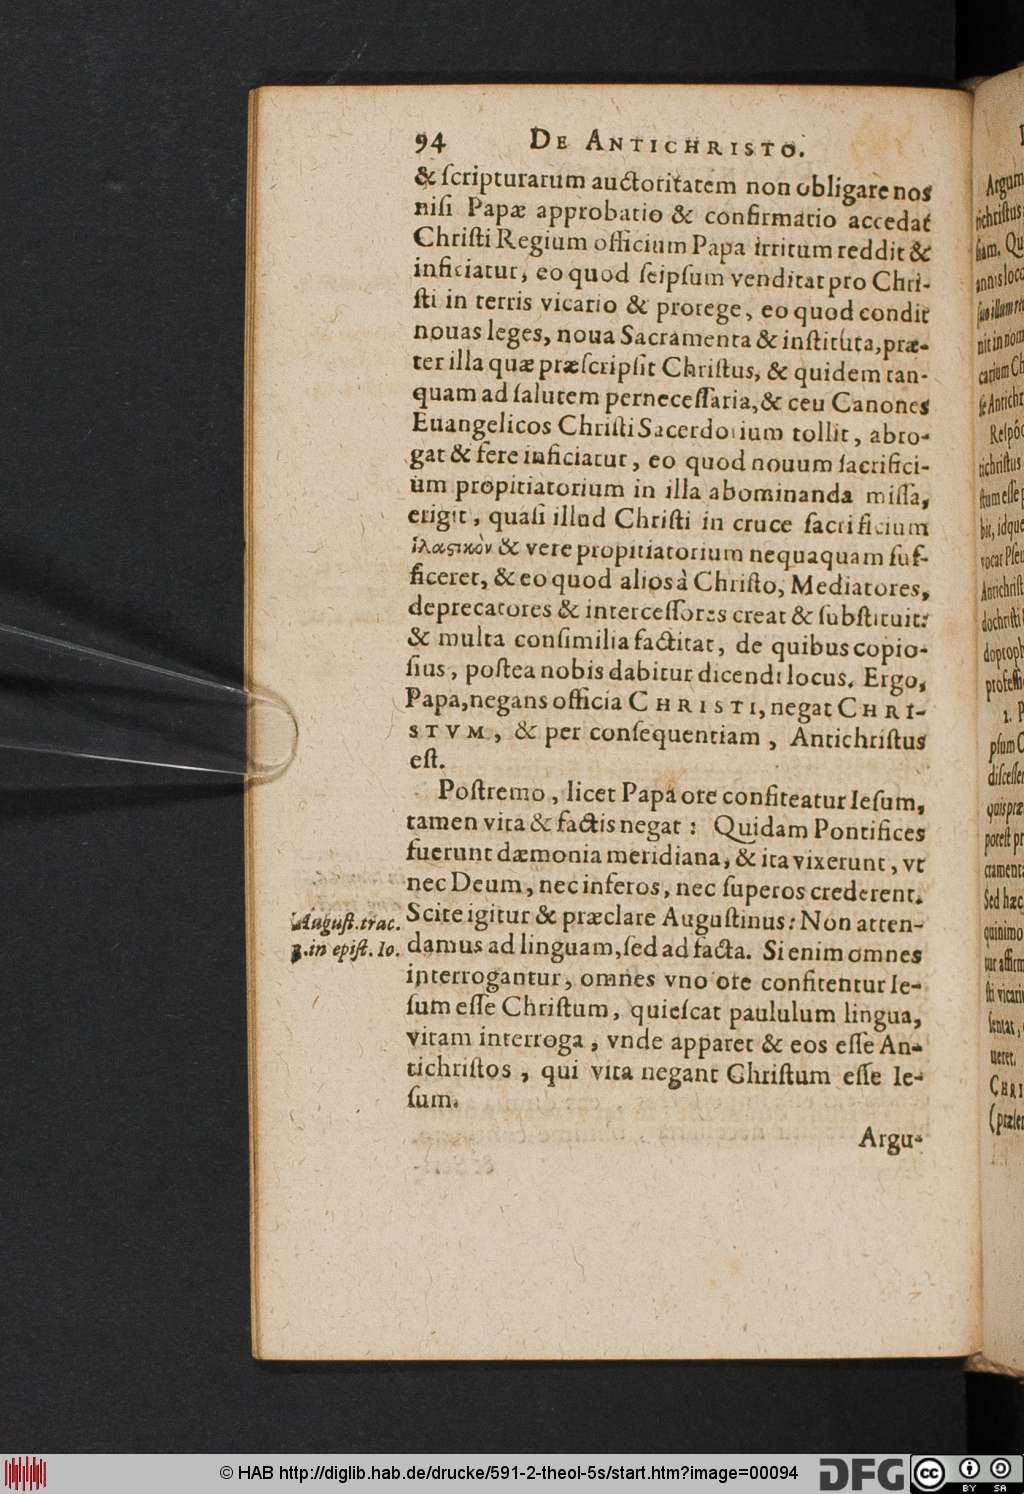 94 DE ANTICHRISTO.
& ſcripturarum auctoritatem non obligare nos
niſi Papæ approbatio & confirmatio accedat
Chriſti Regium officium Papa irritum reddit &
inficiatur, eo quod ſeipſum venditat pro Chri-
ſti in terris vicario & protege, eo quod condit
nouas leges, noua Sacramenta & inſtituta, præ-
ter illa quæ præſcripſit Chriſtus, & quidem tan-
quam ad ſalutem perneceſſaria, & ceu Canones
Euangelicos Chriſti Sacerdotium tollit, abro-
gat & fere inficiatur, eo quod nouum ſacrifici-
um propitiatorium in illa abominanda miſſa,
erigit, quaſi illud Chriſti in cruce ſacrificium
ἱλαϛικὸν & vere propitiatorium nequaquam ſuf-
ficeret, & eo quod alios à Chriſto, Mediatores,
deprecatores & interceſſores creat & ſubſtituit:
& multa conſimilia factitat, de quibus copio-
ſius, poſtea nobis dabitur dicendi locus. Ergo,
Papa, negans officia CHRISTI, negat CHRI-
STVM, & per conſequentiam, Antichriſtus
eſt.
Poſtremo, licet Papa ore confiteatur Ieſum,
tamen vita & factis negat: Quidam Pontifices
fuerunt dæmonia meridiana, & ita vixerunt, vt
nec Deum, nec inferos, nec ſuperos crederent.
Scite igitur & præclare Auguſtinus: Non atten-
Auguſt. trac.
damus ad linguam, ſed ad facta. Si enim omnes
3. in epiſt. Io.
interrogantur, omnes vno ore confitentur Ie-
ſum eſſe Chriſtum, quieſcat paululum lingua,
vitam interroga, vnde apparet & eos eſſe An-
tichriſtos, qui vita negant Chriſtum eſſe Ie-
ſum.
Argu-
© HAB http://diglib.hab.de/drucke/591-2-theol-5s/start.htm?image=00094
DFG
cc BY SA